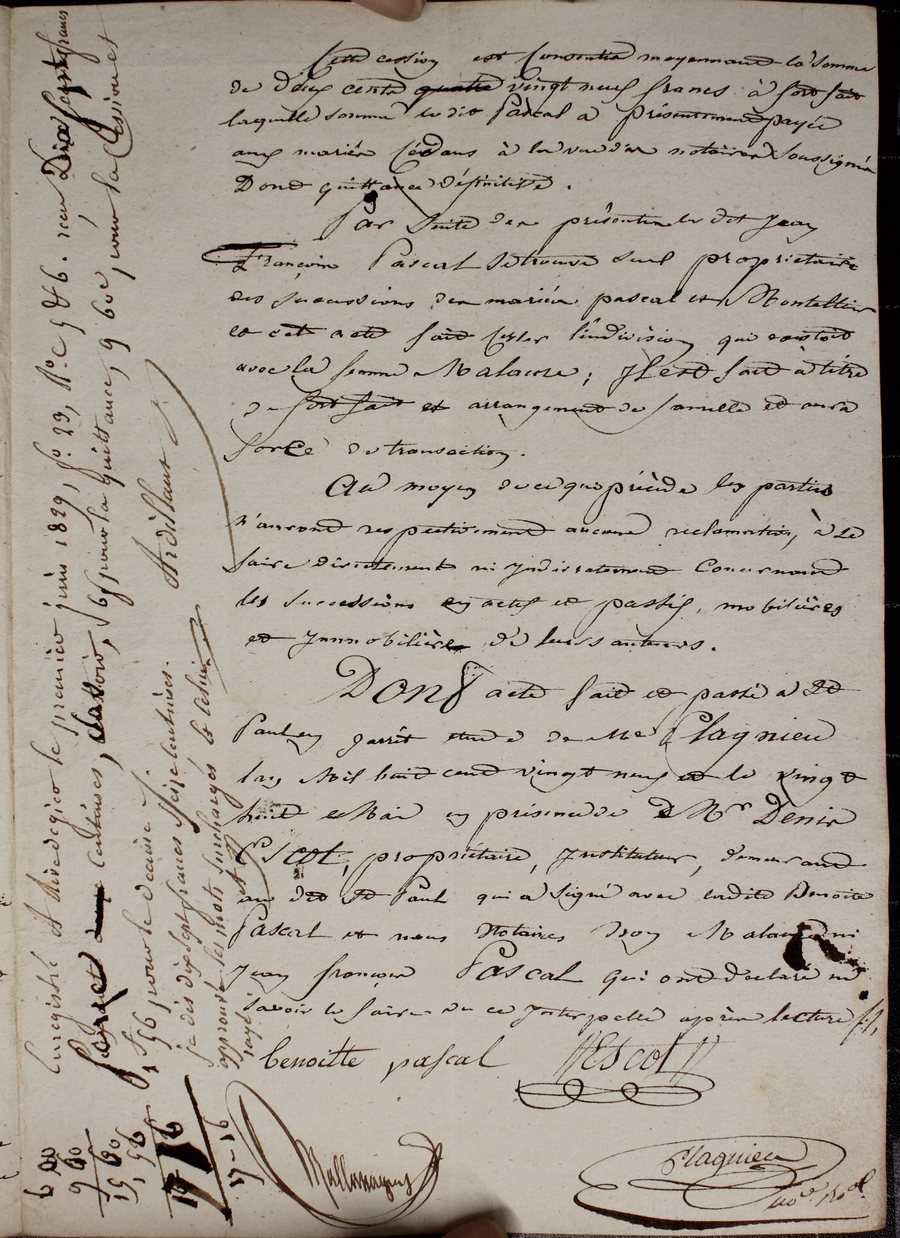 Cette cession est consentie moyennant la somme
de deux cents quatre vingt neuf francs à forfait
laquelle somme ledit Pascal a présentement payée
aux mariés cédans à la vue des notaires soussignés
Dont quittance définitive.
Par suite des présentes ledit Jean
François Pascal se trouve seul propriétaire
des successions des mariés pascal et Montellier
et cet acte fait cesser l'indivision qui existoit
avec la femme Malaure; Il est fait à titre
de forfait et arrangement de famille et aura
force de transaction.
Au moyen de ce que précède les parties
n'auront respectivement aucune réclamation, à se
faire directement ni Indirectement concernant
les successions en actif et passif, mobilières
et Immobilières de leurs auteurs.
Dont acte fait et passé à St
Paul en Jarrêt étude de Me Plagnieu
l'an Mil huit cent vingt neuf et le vingt
huit Mai en présence de Mr Denis
Escot, propriétaire, Instituteur, demeurant
au dit St Paul qui a signé avec ladite Benoite
Pascal et nous Notaires non Malaure ni
Jean françois Pascal qui ont déclaré ne
savoir le faire de ce Interpellé après lecture
benoitte pascal
Escot
Plagnieu
Enregistré à Rivedegier le premier juin 1829, fo 23, Ro C 5 & 6. reçu Dix sept francs
centimes, savoir, pour la quittance, 9 60c, pour la Cession et
1f, 96 pour le décime.
je dis dix sept francs seize centimes.
Ardillant
approuvé les mots surchargés
rayé
6 00
9 60
15 60
1 56
17 16
17-16